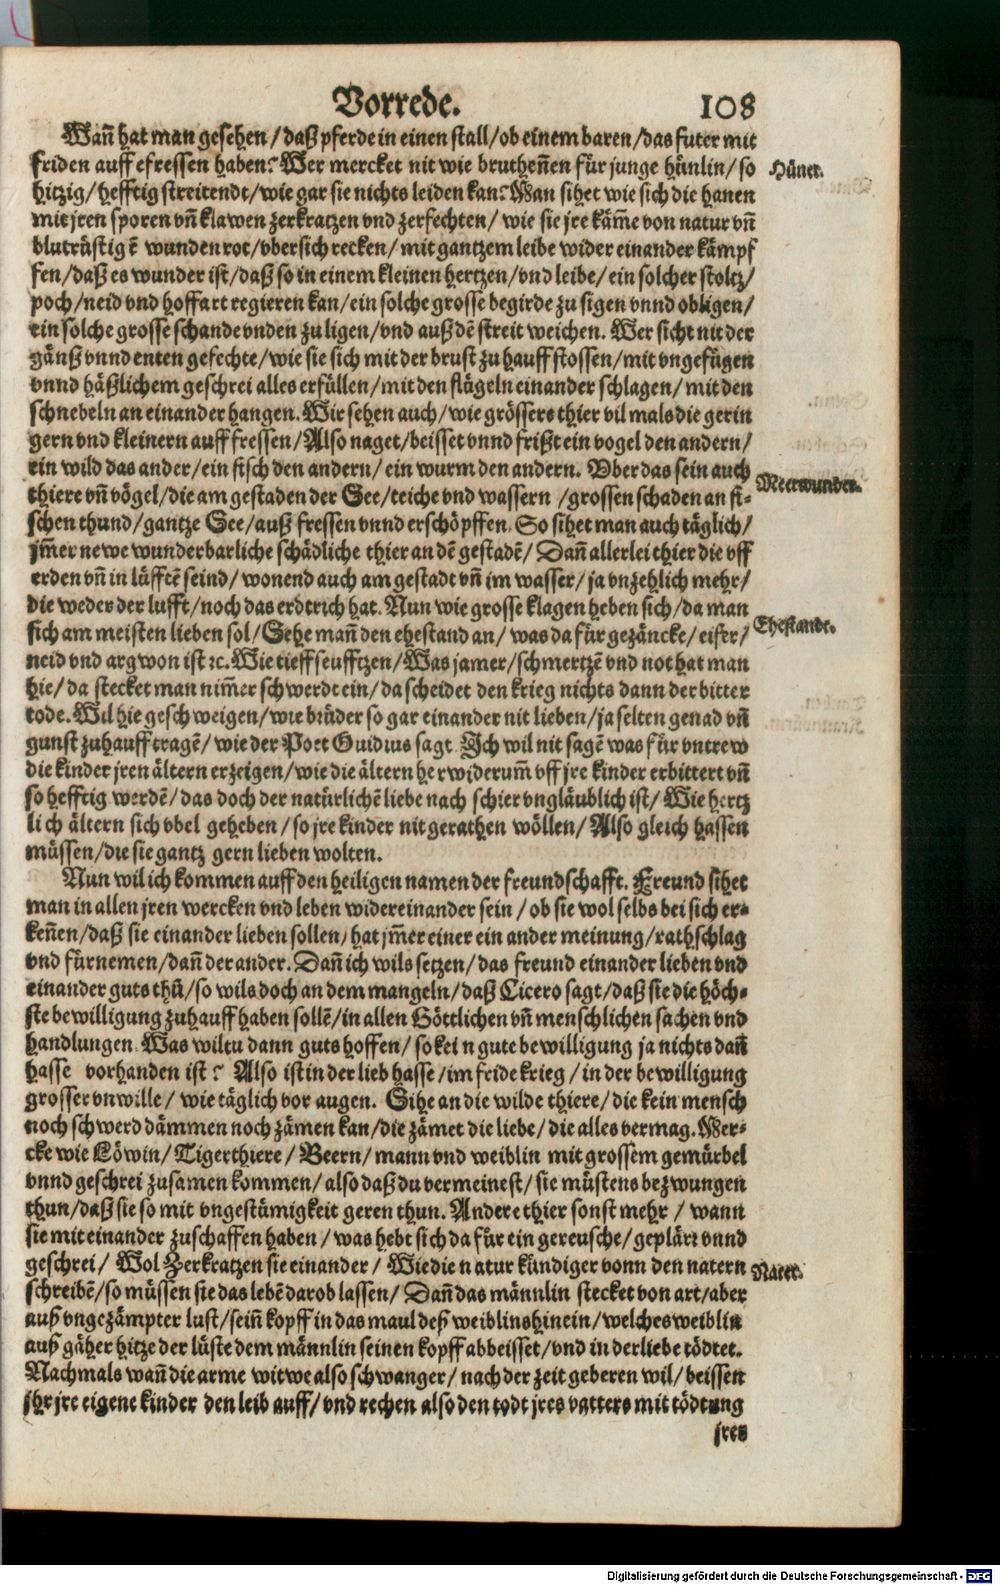 Vorrede. 108
Wañ hat man gesehen / daß pferde in einen stall / ob einem baren / das futer mit
friden auff efressen haben? Wer mercket nit wie brutheñen für junge hünlin / so
Hüner.
hitzig / hefftig streitendt / wie gar sie nichts leiden kan? Man sihet wie sich die hanen
mit jren sporen vñ klawen zerkratzen vnd zerfechten / wie sie jre käm̃e von natur vñ
blutrüstigẽ wunden rot / vbersich recken / mit gantzem leibe wider einander kämpf
fen / daß es wunder ist / daß so in einem kleinen hertzen / vnd leibe / ein solcher stoltz /
poch / neid vnd hoffart regieren kan / ein solche grosse begirde zu sigen vnnd obligen /
ein solche grosse schande vnden zu ligen / vnd auß dẽ streit weichen. Wer sicht nit der
gänß vnnd enten gefechte / wie sie sich mit der brust zu hauff stossen / mit vngefügen
vnnd häßlichem geschrei alles erfüllen / mit den flügeln einander schlagen / mit den
schnebeln an einander hangen. Wir sehen auch / wie grössers thier vil mals die gerin
gern vnd kleinern auff fressen / Also naget / beisset vnnd frißt ein vogel den andern /
ein wild das ander / ein fisch den andern / ein wurm den andern. Vber das sein auch
Meerwunder.
thiere vñ vögel / die am gestaden der See / teiche vnd wassern / grossen schaden an fi-
schen thund / gantze See / auß fressen vnnd erschöpffen. So sihet man auch täglich /
jm̃er newe wunderbarliche schädliche thier an dẽ gestadẽ / Dañ allerlei thier die vff
erden vñ in lüfftẽ seind / wonend auch am gestadt vñ im wasser / ja vnzehlich mehr /
die weder der lufft / noch das erdtrich hat. Nun wie grosse klagen heben sich / da man
Ehestande.
sich am meisten lieben sol / Sehe mañ den ehestand an / was da für gezäncke / eifer /
neid vnd argwon ist ꝛc. Wie tieff seufftzen / Was jamer / schmertzẽ vnd not hat man
hie / da stecket man nim̃er schwerdt ein / da scheidet den krieg nichts dann der bitter
tode. Wil hie geschweigen / wie brüder so gar einander nit lieben / ja selten genad vñ
gunst zuhauff tragẽ / wie der Poet Ouidius sagt. Ich wil nit sagẽ was für vntrew
die kinder jren ältern erzeigen / wie die ältern herwiderum̃ vff jre kinder erbittert vñ
so hefftig werdẽ / das doch der natürlichẽ liebe nach schier vngläublich ist / Wie hertz
lich ältern sich vbel geheben / so jre kinder nit gerathen wöllen / Also gleich hassen
müssen / die sie gantz gern lieben wolten.
Nun wil ich kommen auff den heiligen namen der freundschafft. Freund sihet
man in allen jren wercken vnd leben widereinander sein / ob sie wol selbs bei sich er-
keñen / daß sie einander lieben sollen / hat jm̃er einer ein ander meinung / rathschlag
vnd fürnemen / dañ der ander. Dañ ich wils setzen / das freund einander lieben vnd
einander guts thũ / so wils doch an dem mangeln / daß Cicero sagt / daß sie die höch-
ste bewilligung zuhauff haben sollẽ / in allen Göttlichen vñ menschlichen sachen vnd
handlungen. Was wiltu dann guts hoffen / so kein gute bewilligung ja nichts dañ
hasse vorhanden ist? Also ist in der lieb hasse / im fride krieg / in der bewilligung
grosser vnwille / wie täglich vor augen. Sihe an die wilde thiere / die kein mensch
noch schwerd dämmen noch zämen kan / die zämet die liebe / die alles vermag. Mer-
cke wie Löwin / Tigerthiere / Beern / mann vnd weiblin mit grossem gemürbel
vnnd geschrei zusamen kommen / also daß du vermeinest / sie müstens bezwungen
thun / daß sie so mit vngestümigkeit geren thun. Andere thier sonst mehr / wann
sie mit einander zuschaffen haben / was hebt sich da für ein gereusche / geplärr vnnd
geschrei / Wol Zerkratzen sie einander / Wie die natur kündiger vonn den natern
Nater.
schreibẽ / so müssen sie das lebẽ darob lassen / Dañ das männlin stecket von art / aber
auß vngezämpter lust / seiñ kopff in das maul deß weiblins hinein / welches weiblin
auß gäher hitze der lüste dem männlin seinen kopff abbeisset / vnd in der liebe tödtet.
Nachmals wañ die arme witwe also schwanger / nach der zeit geberen wil / beissen
jhr jre eigene kinder den leib auff / vnd rechen also den todt jres vatters mit tödtung
jres
Digitalisierung gefördert durch die Deutsche Forschungsgemeinschaft - DFG